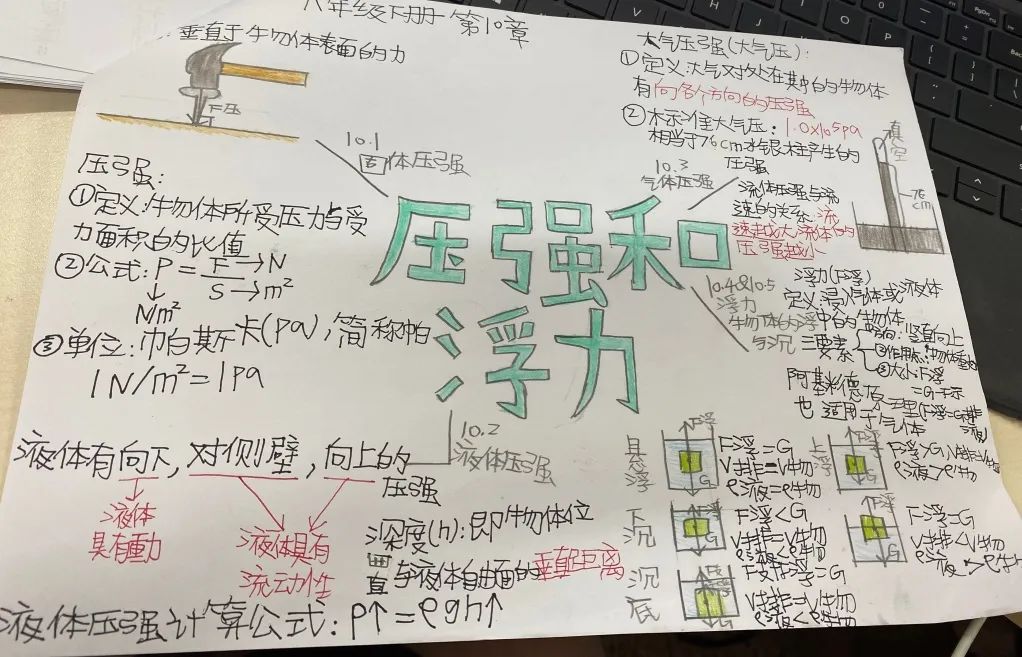 八年级下册 第10章
垂直于物体表面的力
F压
10.1
固体压强
压强:
①定义:物体所受压力与受
力面积的比值
②公式:P=F/S
F→N
S→m²
N/m²
③单位:帕斯卡(Pa),简称帕
1N/m²=1Pa
压强和
浮力
大气压强(大气压):
①定义:大气对处在其中的物体
有向各个方向的压强
②标准大气压:1.0×10⁵Pa
相当于76cm水银柱产生的
压强
10.3
气体压强
流体压强与流
速的关系:流
速越大,流体的
压强越小
真空
76
cm
10.4&10.5
浮力
物体的浮
与沉
浮力(F浮)
定义:浸入气体或液体
中的物体
三要素
方向:竖直向上
②作用点:物体重心
③大小:F浮
=G-F示
阿基米德原理(F浮=G排液)
也适用于气体
10.2
液体压强
液体有向下,对侧壁,向上的
压强
液体
具有重力
液体具有
流动性
深度(h):即物体位
置与液体自由面的垂直距离
液体压强计算公式:P↑=ρgh↑
悬浮
F浮
G
F浮=G
V排=V物
ρ液=ρ物
上浮
F浮
G
F浮>G
V排=V物
ρ液>ρ物
下沉
F浮
G
F浮<G
V排=V物
ρ液<ρ物
F浮
G
F浮=G
V排<V物
ρ液>ρ物
沉底
G
F支+F浮=G
V排=V物
ρ液<ρ物